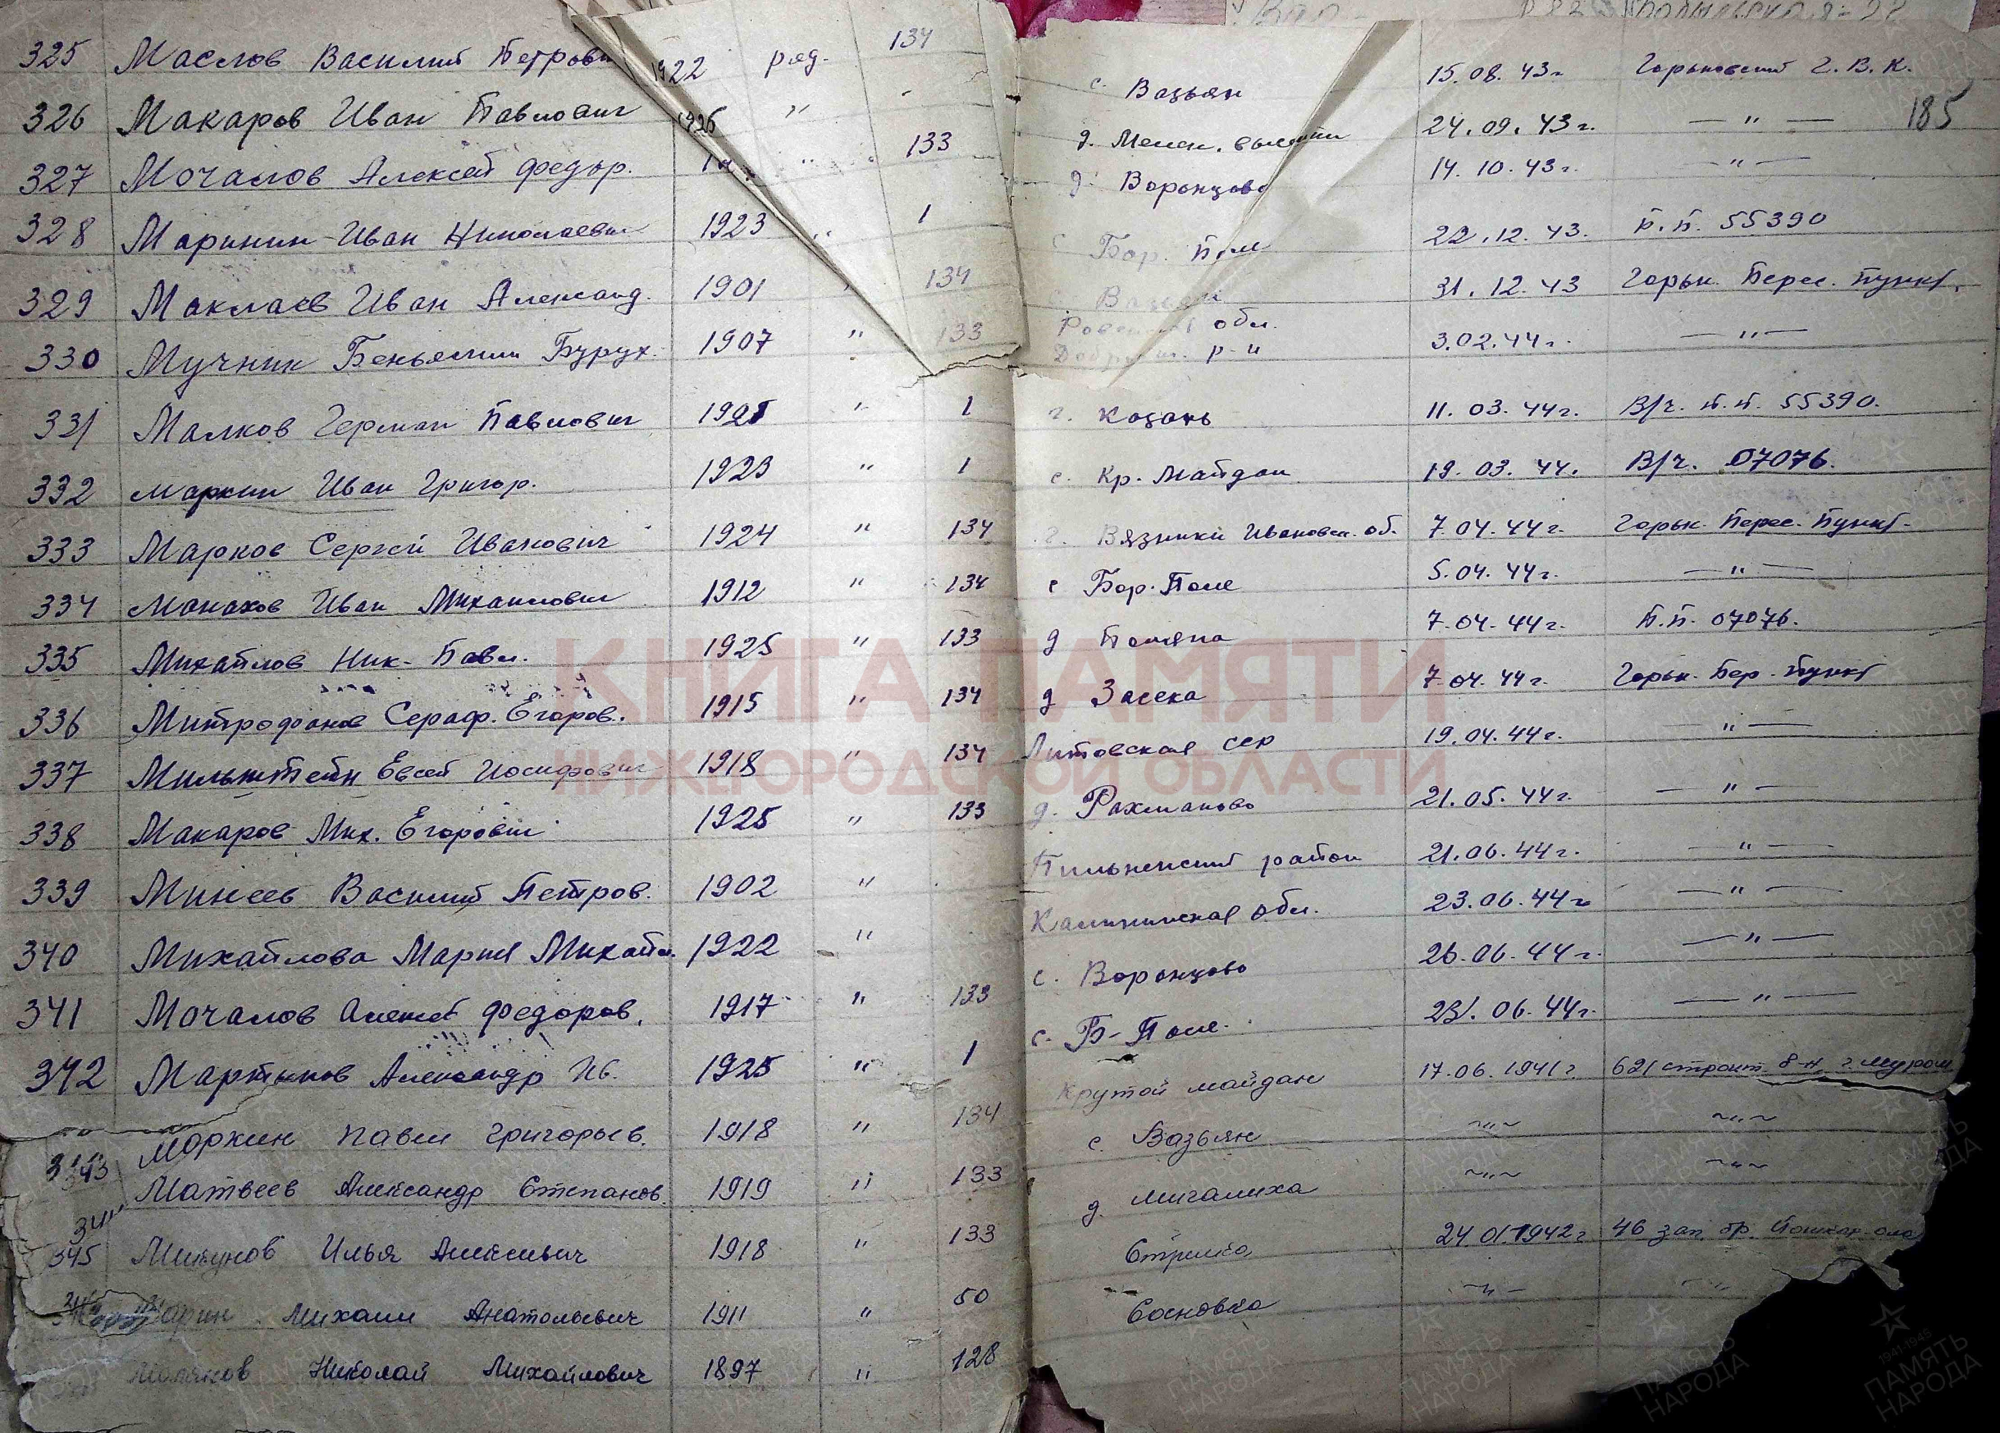 325 Маслов Василий Петрович 1922 ряд. 134 с. Вазьян 15.08.43г Горьковский Г.В.К.
185
326 Макаров Иван Павлович 1926 " " д. Мелен. 24.09.43г. — " —
327 Мочалов Алексей Федор. " 133 д. Воронцово 14.10.43г. — " —
328 Маринин Иван Николаевич 1923 " 1 с Бор. Поле 22.12.43. П.П. 55390
329 Маклаев Иван Александ. 1901 " 134 с Вазьян 31.12.43 Горьк. Перес. пункт.
330 Мучник Беньямин Бурух. 1907 " 133 обл. р-н 3.02.44г. — " —
331 Малков Герман Павлович 1925 " 1 г. Казань 11.03.44г. В/г. п.п. 55390.
332 Маркин Иван Григор. 1923 " 1 с. Кр. Майдан 19.03.44. В/г. 07076.
333 Марков Сергей Иванович 1924 " 134 г. Вязники Ивановск. об. 7.04.44г. Горьк. Перес. Пункт.
334 Манахов Иван Михайлович 1912 " 134 с Бор. Поле 5.04.44г. — " —
335 Михайлов Ник. Павл. 1925 " 133 д 7.04.44г. П.П. 07076.
336 Митрофанов Сераф. Егоров. 1915 " 134 д Засека 7.04.44г. Горьк. Пер. пункт
337 Мильштейн Евсей Иосифович 1918 " 134 Литовская сср 19.04.44г. — " —
338 Макаров Мих. Егорович 1925 " 133 д. Рахманово 21.05.44г. — " —
339 Минеев Василий Петров. 1902 " Пильненский район 21.06.44г. — " —
340 Михайлова Мария Михайл. 1922 " Калининская обл. 23.06.44г — " —
341 Мочалов Алексей Федоров. 1917 " 133 с. Воронцово 26.06.44г. — " —
342 Мартынов Александр Ив. 1925 " 1 с. Б-Поле. 23.06.44г. — " —
343 Маркин Павел Григорьев. 1918 " 134 Крутой майдан 17.06.1941г. 621 г. Муром
344 Матвеев Александр Степанов. 1919 " 133 с. Вазьян " "
345 Микунов Илья Алексеевич 1918 " 133 д. Мигалиха " "
Михаил Анатольевич 1911 " 50 Стрелка 24.01.1942г 46 зап. бр. Йошкар-ола
Николай Михайлович 1897 " 128 Сосновка " "
КНИГА ПАМЯТИ
НИЖЕГОРОДСКОЙ ОБЛАСТИ
ПАМЯТЬ НАРОДА